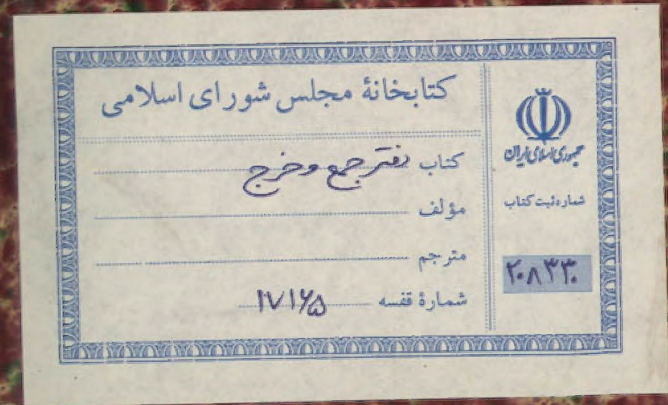 کتابخانهٔ مجلس شورای اسلامی
کتاب دفتر جمع و خرج
مؤلف
مترجم
شمارهٔ قفسه ۱۷۱۶۵
جمهوری اسلامی ایران
شماره ثبت کتاب
۲۰۸۳۳۰